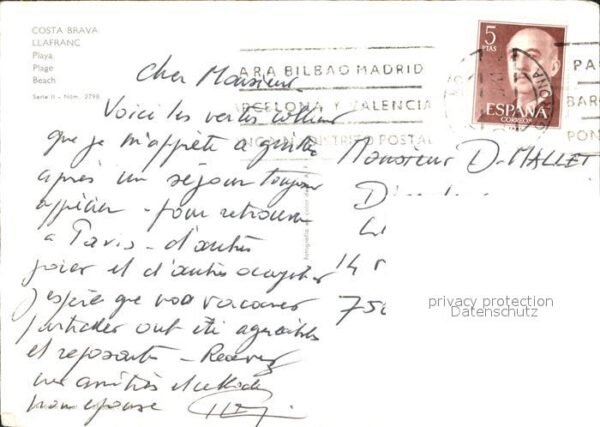 COSTA BRAVA
LLAFRANC
Playa
Plage
Beach
Serie II - Núm. 2798
Cher Monsieur
Voici les vertes collines
que je m'apprête à quitter
après un séjour toujours
apprécié - pour retrouver
à Paris - d'autres
joies et d'autres occupations
J'espère que vos vacances
ont été agréables
et reposantes - Recevez
mes amitiés et celles de
mon épouse
5
PTAS
ESPAÑA
CORREOS
PARA BILBAO MADRID
BARCELONA Y VALENCIA
PONGAN DISTRITO POSTAL
Monsieur D. MALLET
14
75
privacy protection
Datenschutz